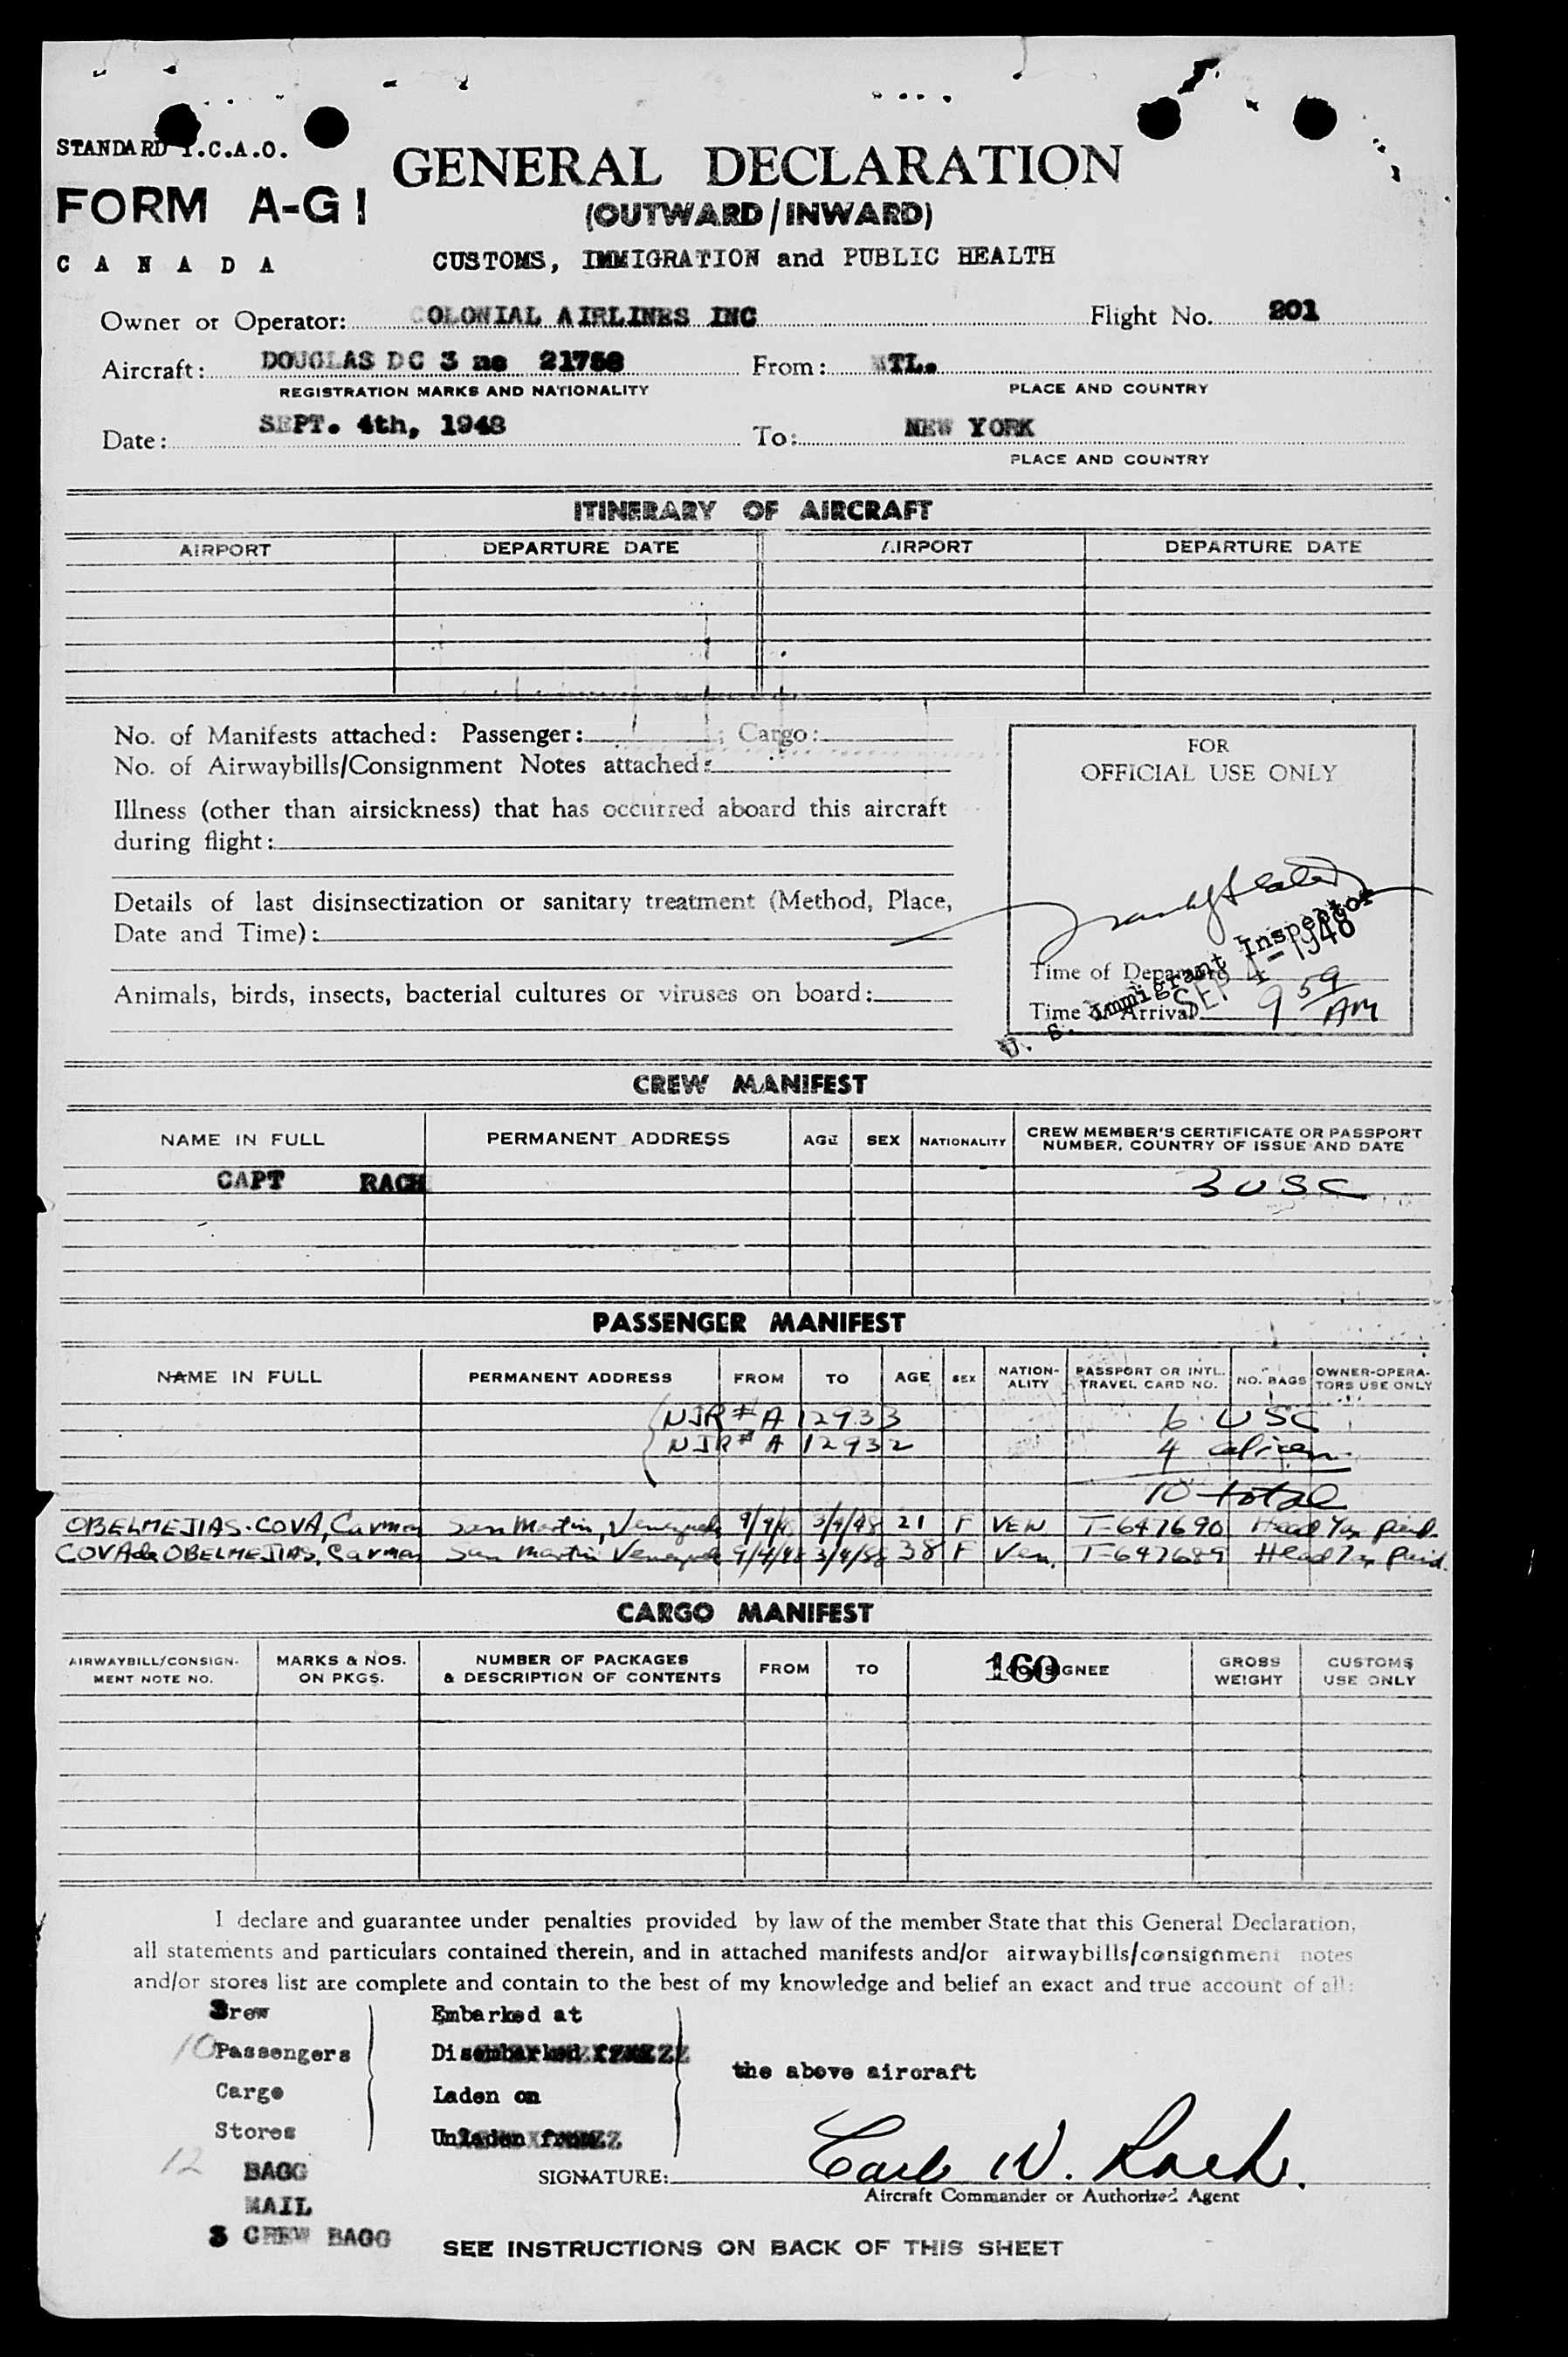 STANDARD I.C.A.O.
FORM A-G1
CANADA
GENERAL DECLARATION
(OUTWARD/INWARD)
CUSTOMS, IMMIGRATION and PUBLIC HEALTH
Owner or Operator: COLONIAL AIRLINES INC Flight No. 201
Aircraft: DOUGLAS DC 3 nc 21758 From: MTL.
REGISTRATION MARKS AND NATIONALITY PLACE AND COUNTRY
Date: SEPT. 4th, 1948 To: NEW YORK
PLACE AND COUNTRY
ITINERARY OF AIRCRAFT
AIRPORT DEPARTURE DATE AIRPORT DEPARTURE DATE
No. of Manifests attached: Passenger: ; Cargo:
No. of Airwaybills/Consignment Notes attached:
Illness (other than airsickness) that has occurred aboard this aircraft
during flight:
Details of last disinsectization or sanitary treatment (Method, Place,
Date and Time):
Animals, birds, insects, bacterial cultures or viruses on board:
FOR
OFFICIAL USE ONLY
U. S. Immigrant Inspector
SEP 4-1948
Time of Departure
Time of Arrival 9 59 AM
CREW MANIFEST
NAME IN FULL PERMANENT ADDRESS AGE SEX NATIONALITY CREW MEMBER'S CERTIFICATE OR PASSPORT NUMBER, COUNTRY OF ISSUE AND DATE
CAPT RACH 3 USC
PASSENGER MANIFEST
NAME IN FULL PERMANENT ADDRESS FROM TO AGE SEX NATION-ALITY PASSPORT OR INTL. TRAVEL CARD NO. NO. BAGS OWNER-OPERA-TORS USE ONLY
NJR # A 12933 6 USC
NJR # A 12932 4 alien
10 total
OBELMEJIAS-COVA, Carmen San Martin, Venezuela 9/4/48 3/4/48 21 F VEN T-647690 Head Tax paid.
COVA de OBELMEJIAS, Carmen San Martin Venezuela 9/4/48 38 F Ven. T-647689 Head Tax paid.
CARGO MANIFEST
AIRWAYBILL/CONSIGN-MENT NOTE NO. MARKS & NOS. ON PKGS. NUMBER OF PACKAGES & DESCRIPTION OF CONTENTS FROM TO CONSIGNEE GROSS WEIGHT CUSTOMS USE ONLY
160
I declare and guarantee under penalties provided by law of the member State that this General Declaration,
all statements and particulars contained therein, and in attached manifests and/or airwaybills/consignment notes
and/or stores list are complete and contain to the best of my knowledge and belief an exact and true account of all:
3rew Embarked at
10 Passengers Disembarked from
the above aircraft
Cargo Laden on
Stores Unladen from
12 BAGG
SIGNATURE: Carl W. Rach.
Aircraft Commander or Authorized Agent
MAIL
3 CREW BAGG
SEE INSTRUCTIONS ON BACK OF THIS SHEET